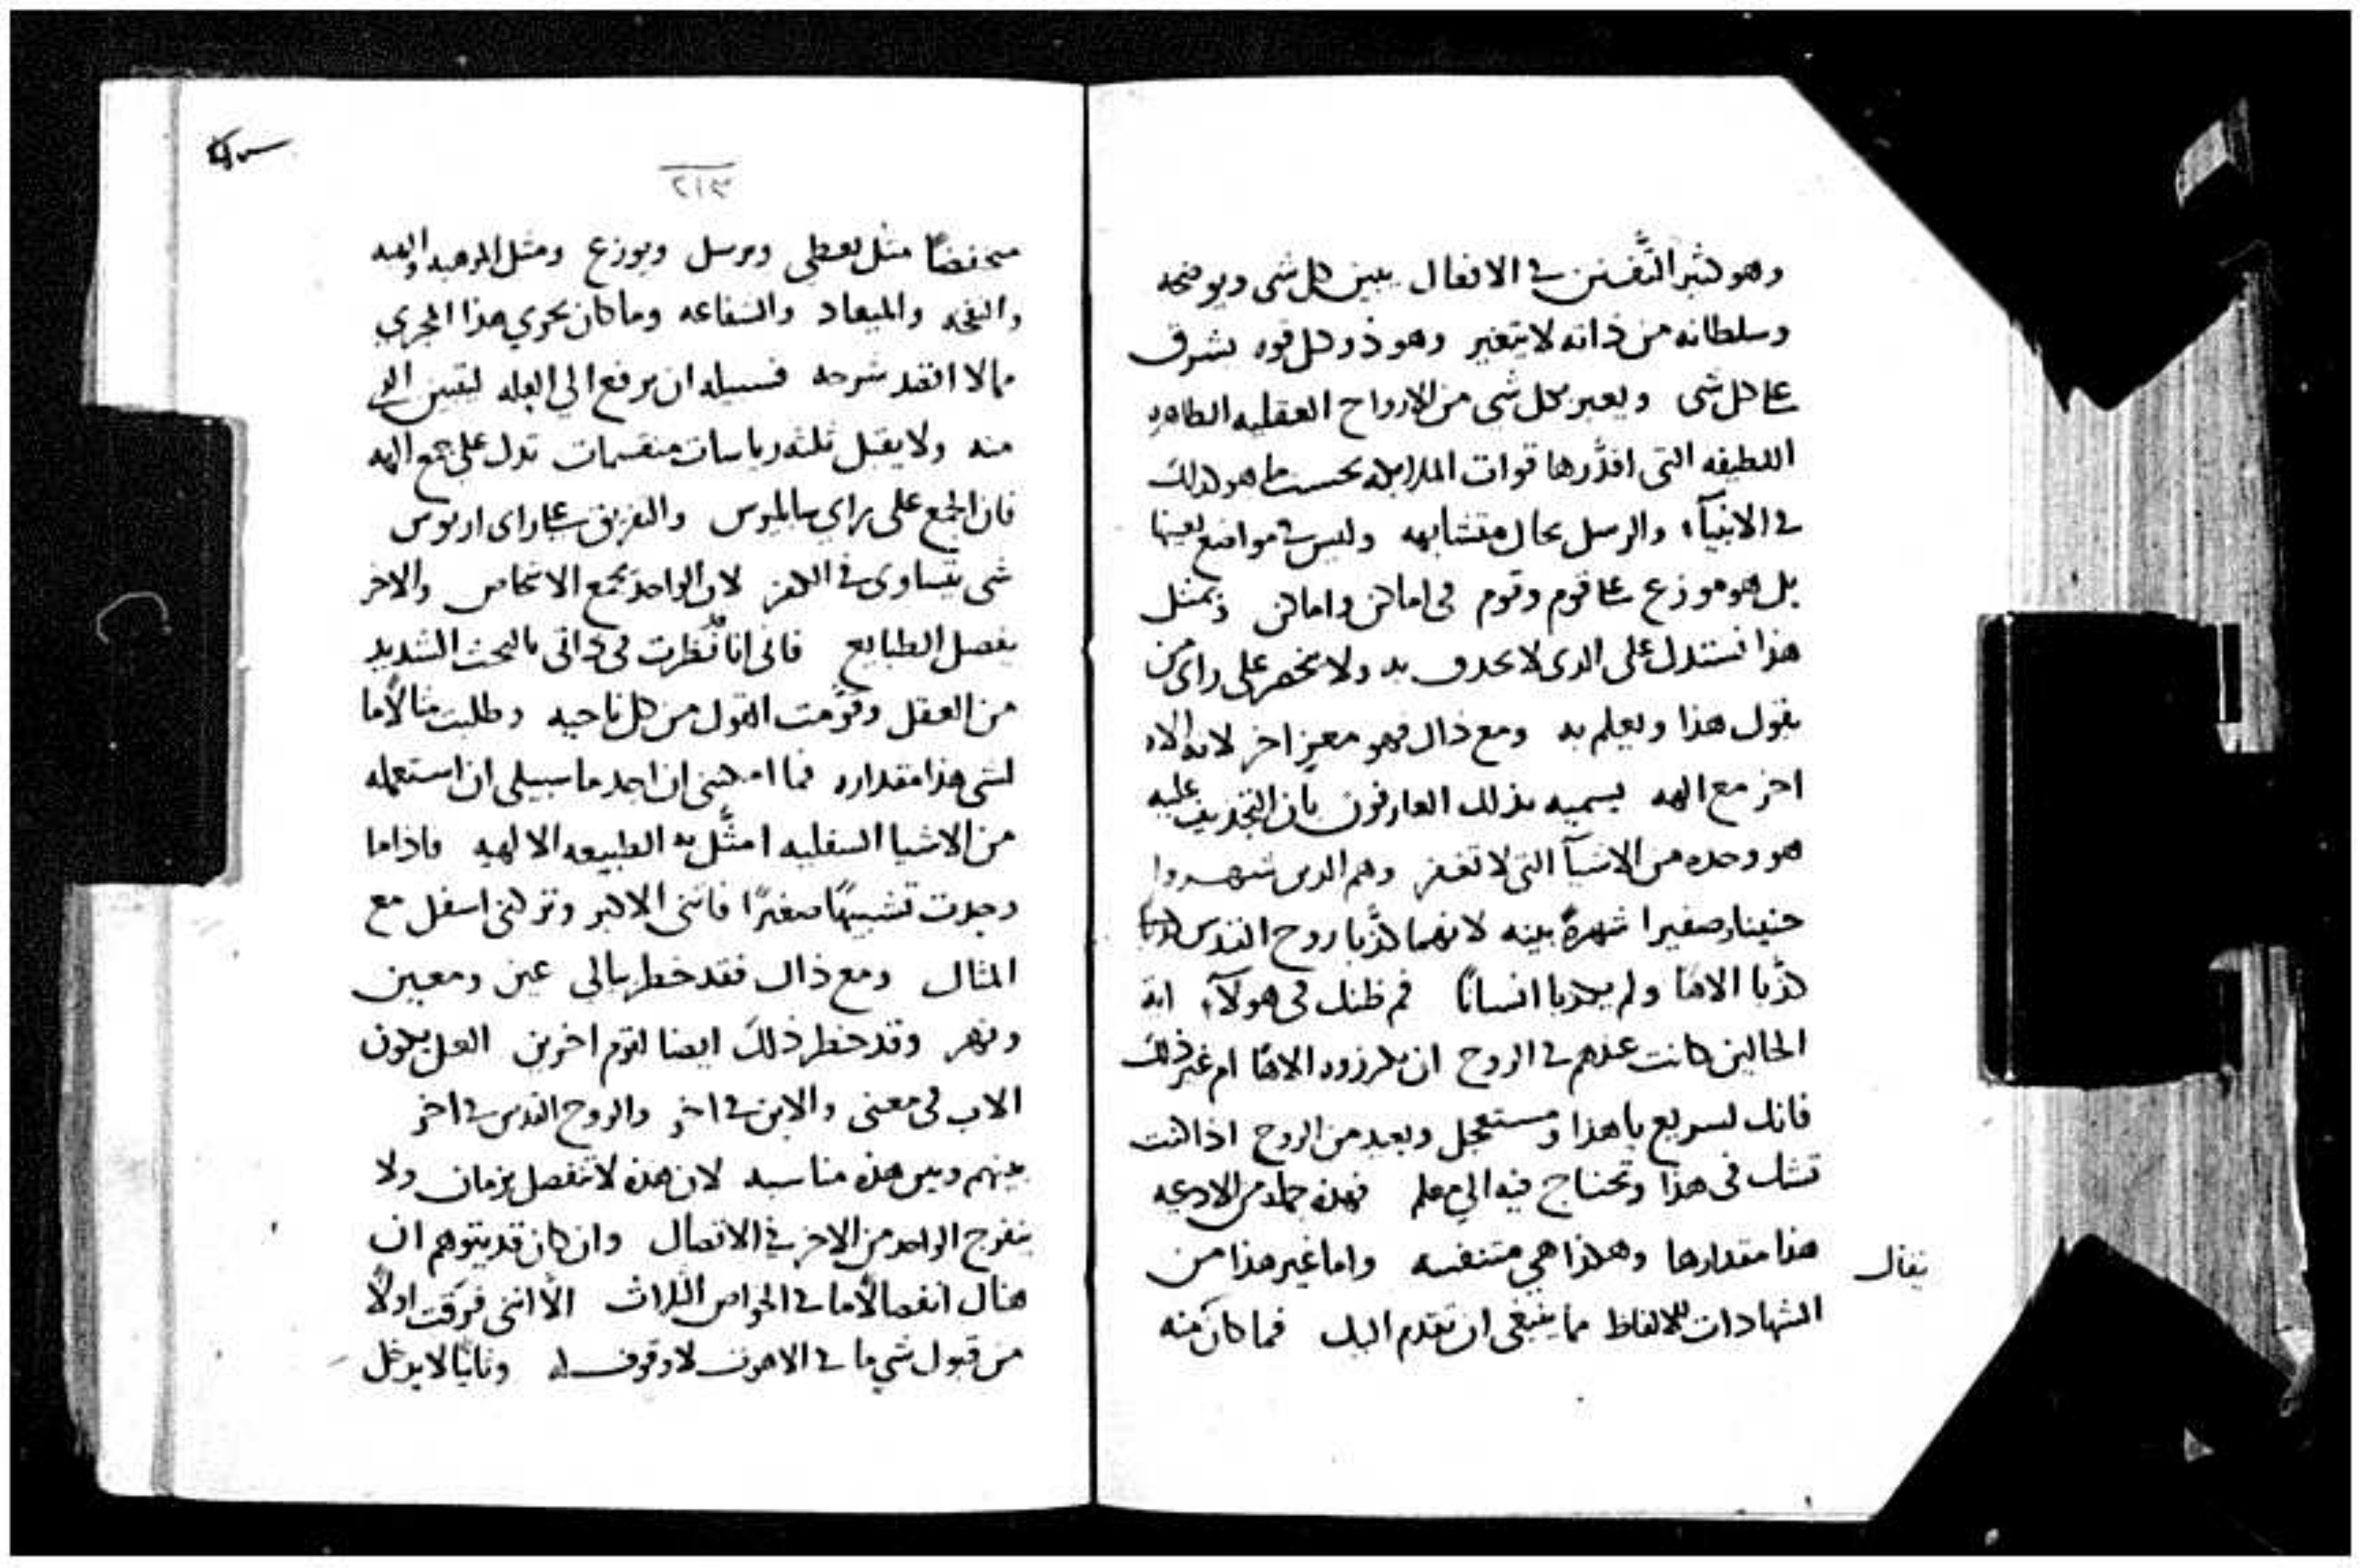 وهو كثير التَّفنن في الافعال يبين كل شى ويوضحه
وسلطانه من ذاته لا يتغير وهو ذو كل قوه يشرف
على كل شى ويعبر بكل شى من الارواح العقليه الطاهره
اللطيفه التى اقدّرها قوات الملايكه بحسب ما هو كذلك
في الانبيآء والرسل بحال متشابهه وليس في مواضع بعينها
بل هو موزع على قوم وقوم فى اماكن واماكن وبمثل
هذا نستدل على الدى لا يحدف به ولا يحصر على راى من
يقول هذا ويعلم به ومع ذاك فهو معزٍ اخر لانه الاه
اخر مع الهه يسميه بذلك العارفون بان التجديف عليه
هو وحده من الاشيآ التى لا تغفر وهم الدين شهروا
حنينا وصفيرا شهرةً بينه لانهما كذّبا روح القدس
كذّبا الاهًا ولم يكذبا انسانًا فم ظنك فى هولآء اية
الحالين كانت عندهم في الروح ان يكرزوه الاهًا ام غير ذلك
فانك لسريع يا هذا ومستعجل وبعيد من الروح اذا كنت
تشك فى هذا وتحتاج فيه الي معلم فهذه جمله من الادعيه
هذا مقدارها وهكذا هي متنفسه واما غير هذا من
يقال
الشهادات للالفاظ مما ينبغى ان تقدم اليك فما كان منه
٢١٣
منخفضًا مثل يعطى ويرسل ويوزع ومثل الموهبه والهبه
والنفخه والميعاد والشفاعه وما كان يجري هذا المجري
مما لا افقد شرحه فسبيله ان يرفع الي العله ليتبين الذي
منه ولا يقبل ثلثه رياسات منقسمات تدل على جمع الهه
فان الجمع على راي سابليوس والتفريق على راى اريوس
شى يتساوى في الكفر لان الواحد يجمع الاشخاص والاخر
يفصل الطبايع فانى انا نظرت فى ذاتى بالبحث الشديد
من العقل وقوّمت القول من كل ناحيه وطلبت مثالًا ما
لشى هذا مقداره فما امكننى ان اجد ما سبيلى ان استعمله
من الاشيا السفليه امثّل به الطبيعه الالهيه فاذا ما
وجدت تشبيهًا صغيرًا فاتنى الاكبر وتركنى اسفل مع
المثال ومع ذاك فقد خطر ببالى عين ومعين
ونهر وقد خطر ذلك ايضا لقوم اخرين لعل يكون
الاب فى معنى والابن في اخر والروح القدس في اخر
بينهم وبين هذه مناسبه لان هذه لا تنفصل بزمان ولا
ينفرج الواحد من الاخر في الاتصال وان كان قد يتوهم ان
هناك انفصالًا ما في الخواص الثلاث الّا اننى فرقت اولًا
من قبول شي ما في الاهوت لا وقوف له وثانيًا لا يدخل